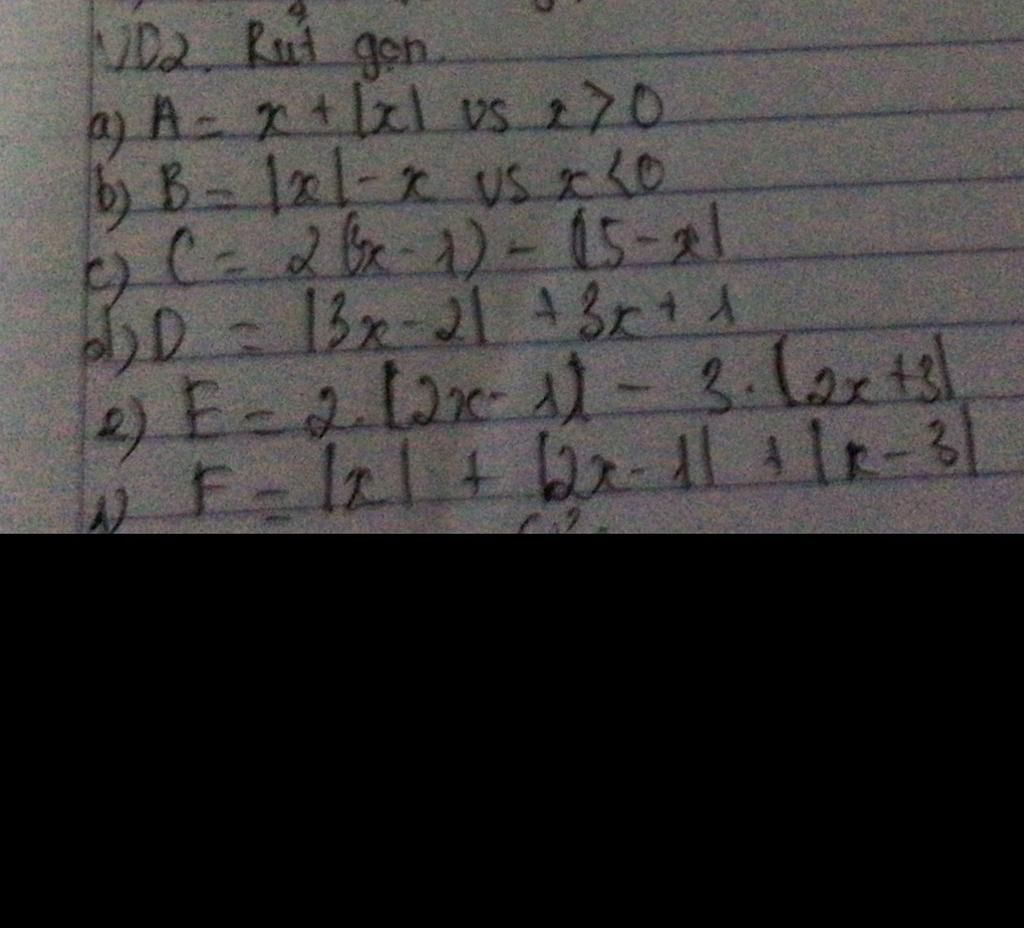 VD2. Rút gọn.
a) A = x + |x| vs x > 0
b) B = |x| - x vs x < 0
c) C = 2(3x - 1) - |5 - x|
d) D = |3x - 2| + 3x + 1
e) E = 2. |2x - 1| - 3. |2x + 3|
F = |x| + |2x - 1| + |x - 3|